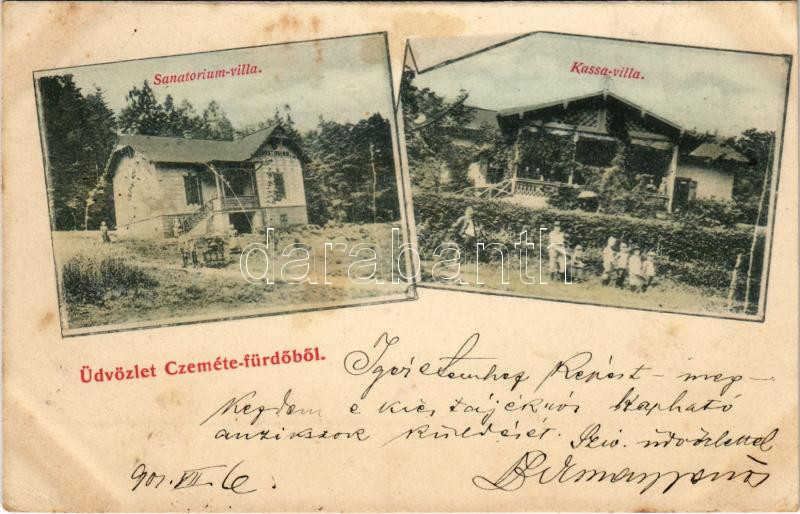 Sanatorium-villa.
Kassa-villa.
darabanth
Üdvözlet Czeméte-fürdőből.
Igéretemhez képest – meg-
kezdem e kies tájékról kapható
anzikszok küldését. Sziv. üdvözlettel
901. VII. 6.